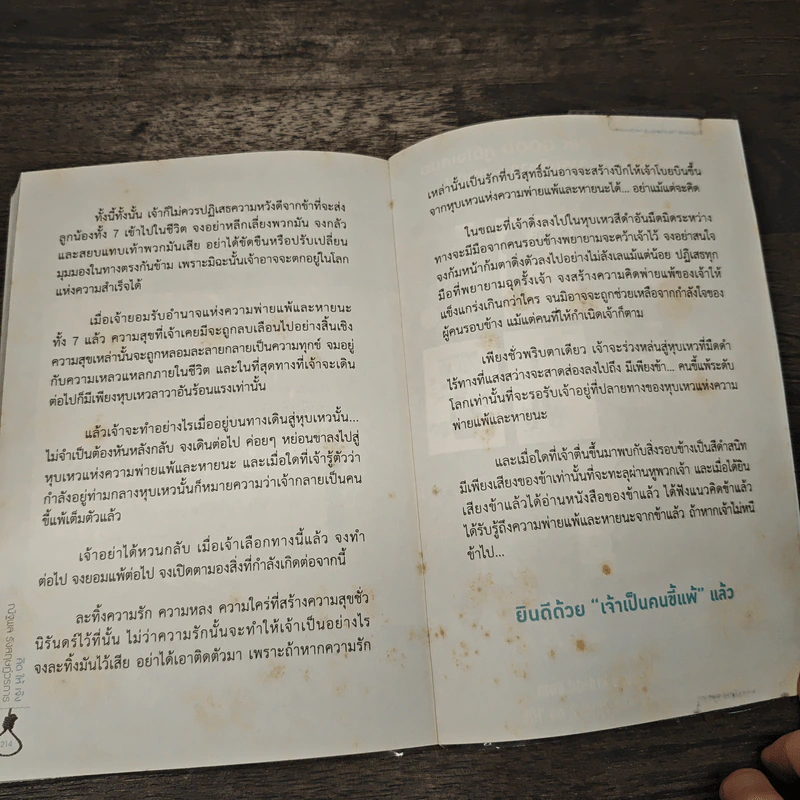 ทั้งนี้ทั้งนั้น เจ้าก็ไม่ควรปฏิเสธความหวังดีจากข้าที่จะส่ง
ลูกน้องทั้ง 7 เข้าไปในชีวิต จงอย่าหลีกเลี่ยงพวกมัน จงกลัว
และสยบแทบเท้าพวกมันเสีย อย่าได้ขัดขืนหรือปรับเปลี่ยน
มุมมองในทางตรงกันข้าม เพราะมิฉะนั้นเจ้าอาจจะตกอยู่ในโลก
แห่งความสำเร็จได้
เมื่อเจ้ายอมรับอำนาจแห่งความพ่ายแพ้และหายนะ
ทั้ง 7 แล้ว ความสุขที่เจ้าเคยมีจะถูกลบเลือนไปอย่างสิ้นเชิง
ความสุขเหล่านั้นจะถูกหลอมละลายกลายเป็นความทุกข์ จมอยู่
กับความเหลวแหลกภายในชีวิต และในที่สุดทางที่เจ้าจะเดิน
ต่อไปก็มีเพียงหุบเหวลาวาอันร้อนแรงเท่านั้น
แล้วเจ้าจะทำอย่างไรเมื่ออยู่บนทางเดินสู่หุบเหวนั้น...
ไม่จำเป็นต้องหันหลังกลับ จงเดินต่อไป ค่อยๆ หย่อนขาลงไปสู่
หุบเหวแห่งความพ่ายแพ้และหายนะ และเมื่อใดที่เจ้ารู้ตัวว่า
กำลังอยู่ท่ามกลางหุบเหวนั้นก็หมายความว่าเจ้ากลายเป็นคน
ขี้แพ้เต็มตัวแล้ว
เจ้าอย่าได้หวนกลับ เมื่อเจ้าเลือกทางนี้แล้ว จงทำ
ต่อไป จงยอมแพ้ต่อไป จงเปิดตามองสิ่งที่กำลังเกิดต่อจากนี้
ละทิ้งความรัก ความหลง ความใคร่ที่สร้างความสุขชั่ว
นิรันดร์ไว้ที่นั้น ไม่ว่าความรักนั้นจะทำให้เจ้าเป็นอย่างไร
จงละทิ้งมันไว้เสีย อย่าได้เอาติดตัวมา เพราะถ้าหากความรัก
214
เหล่านั้นเป็นรักที่บริสุทธิ์มันอาจจะสร้างปีกให้เจ้าโบยบินขึ้น
จากหุบเหวแห่งความพ่ายแพ้และหายนะได้... อย่าแม้แต่จะคิด
ในขณะที่เจ้าดิ่งลงไปในหุบเหวสีดำอันมืดมิดระหว่าง
ทางจะมีมือจากคนรอบข้างพยายามจะคว้าเจ้าไว้ จงอย่าสนใจ
จงก้มหน้าก้มตาดิ่งตัวลงไปอย่างไม่ลังเลแม้แต่น้อย ปฏิเสธทุก
มือที่พยายามฉุดรั้งเจ้า จงสร้างความคิดพ่ายแพ้ของเจ้าให้
แข็งแกร่งเกินกว่าใคร จนมิอาจจะถูกช่วยเหลือจากกำลังใจของ
ผู้คนรอบข้าง แม้แต่คนที่ให้กำเนิดเจ้าก็ตาม
เพียงชั่วพริบตาเดียว เจ้าจะร่วงหล่นสู่หุบเหวที่มืดดำ
ไร้ทางที่แสงสว่างจะสาดส่องลงไปถึง มีเพียงข้า... คนขี้แพ้ระดับ
โลกเท่านั้นที่จะรอรับเจ้าอยู่ที่ปลายทางของหุบเหวแห่งความ
พ่ายแพ้และหายนะ
และเมื่อใดที่เจ้าตื่นขึ้นมาพบกับสิ่งรอบข้างเป็นสีดำสนิท
มีเพียงเสียงของข้าเท่านั้นที่จะทะลุผ่านหูพวกเจ้า และเมื่อได้ยิน
เสียงข้าแล้วได้อ่านหนังสือของข้าแล้ว ได้ฟังแนวคิดข้าแล้ว
ได้รับรู้ถึงความพ่ายแพ้และหายนะจากข้าแล้ว ถ้าหากเจ้าไม่หนี
ข้าไป...
ยินดีด้วย "เจ้าเป็นคนขี้แพ้" แล้ว